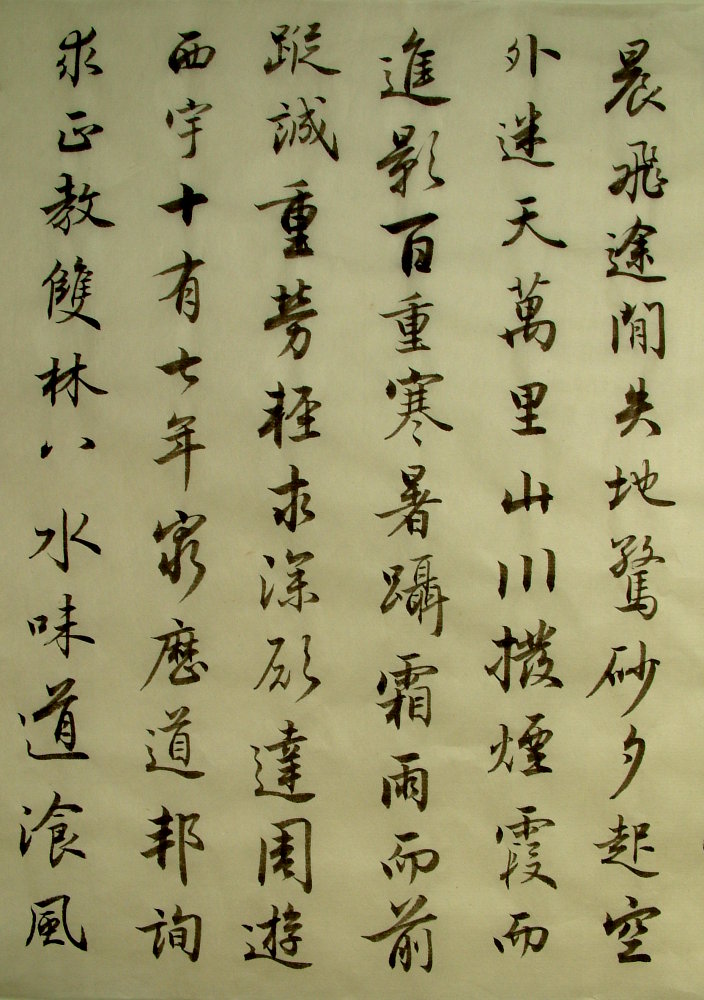 晨飛途閒失地驚砂夕起空
外迷天萬里山川撥煙霞而
進影百重寒暑躡霜雨而前
蹤誠重勞輕求深願達周遊
西宇十有七年窮歷道邦詢
求正教雙林八水味道飡風